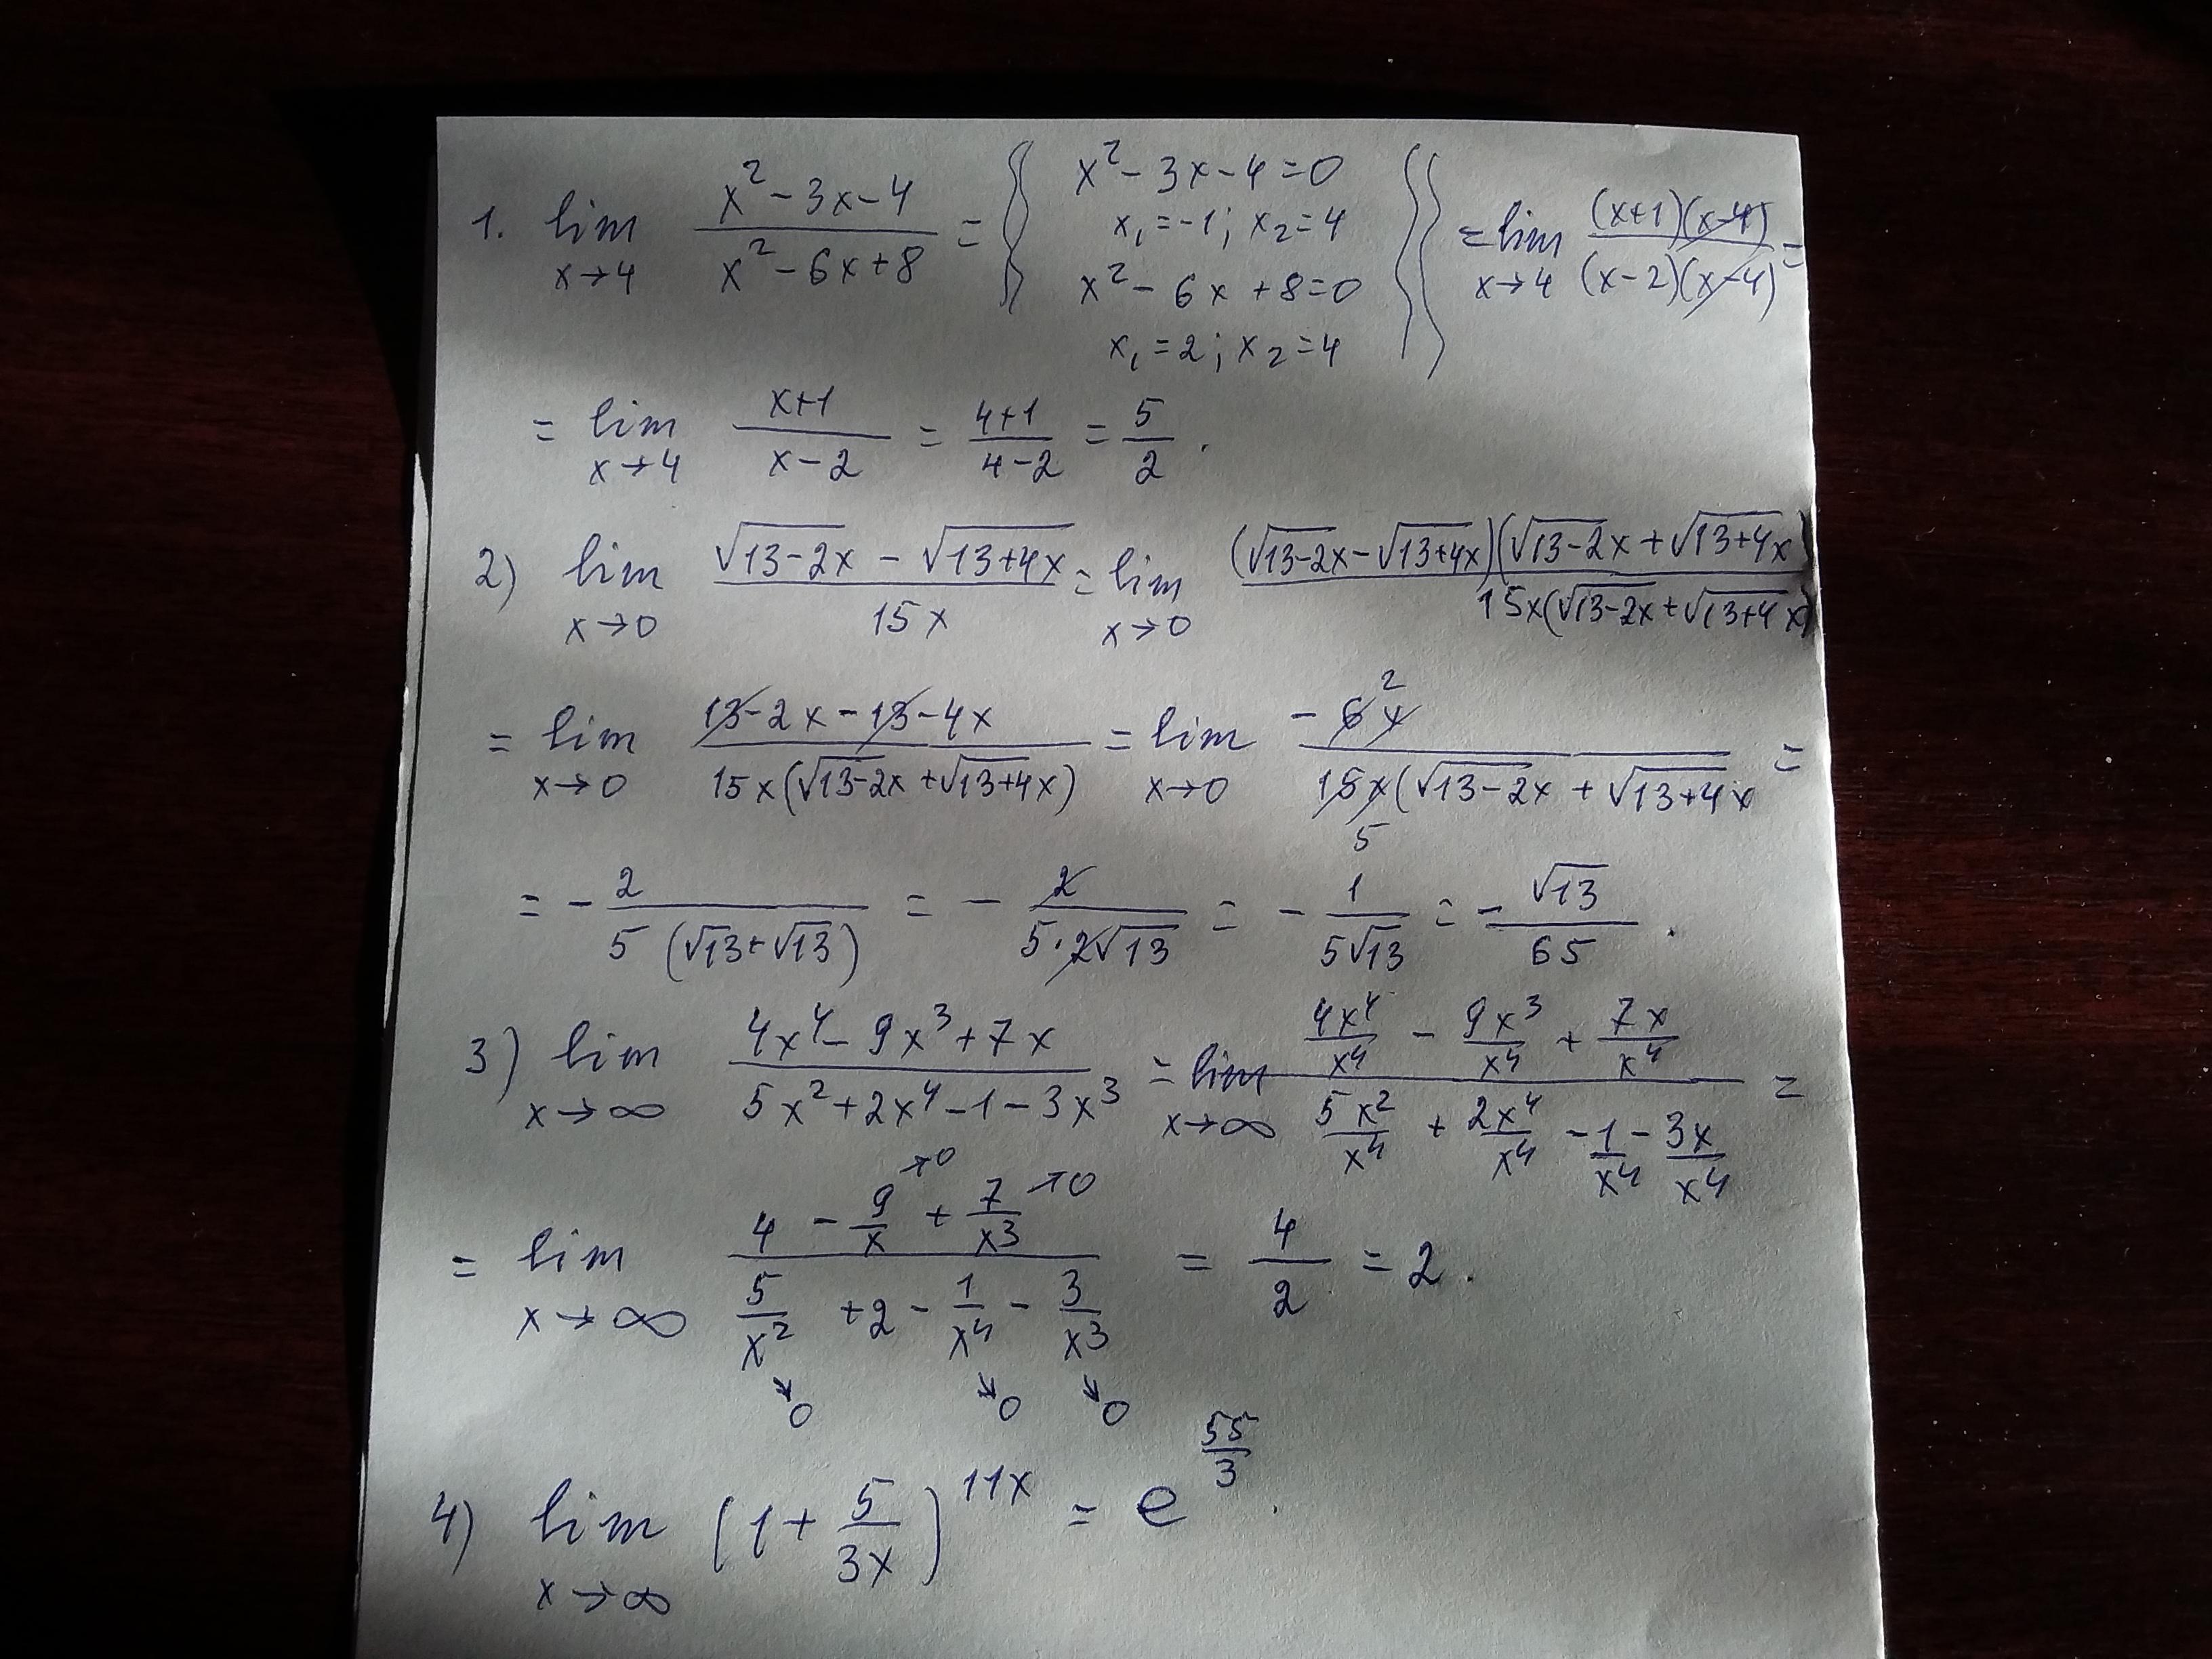 1. lim x→4 (x² - 3x - 4)/(x² - 6x + 8) = { x² - 3x - 4 = 0
x₁ = -1; x₂ = 4
x² - 6x + 8 = 0
x₁ = 2; x₂ = 4 } = lim x→4 (x+1)(x-4)/(x-2)(x-4) =
= lim x→4 (x+1)/(x-2) = (4+1)/(4-2) = 5/2.
2) lim x→0 (√(13-2x) - √(13+4x))/(15x) = lim x→0 (√(13-2x) - √(13+4x))(√(13-2x) + √(13+4x))/(15x(√(13-2x) + √(13+4x)))
= lim x→0 (13-2x-13-4x)/(15x(√(13-2x) + √(13+4x))) = lim x→0 -6x 2/(15x 5(√(13-2x) + √(13+4x)) =
= - 2/(5(√13+√13)) = - 2/(5·2√13) = - 1/(5√13) = - √13/65.
3) lim x→∞ (4x⁴ - 9x³ + 7x)/(5x² + 2x⁴ - 1 - 3x³) = lim x→∞ (4x⁴/x⁴ - 9x³/x⁴ + 7x/x⁴)/(5x²/x⁴ + 2x⁴/x⁴ - 1/x⁴ - 3x/x⁴) =
= lim x→∞ (4 - 9/x →0 + 7/x³ →0)/(5/x² →0 + 2 - 1/x⁴ →0 - 3/x³ →0) = 4/2 = 2.
4) lim x→∞ (1 + 5/(3x))^(11x) = e^(55/3).